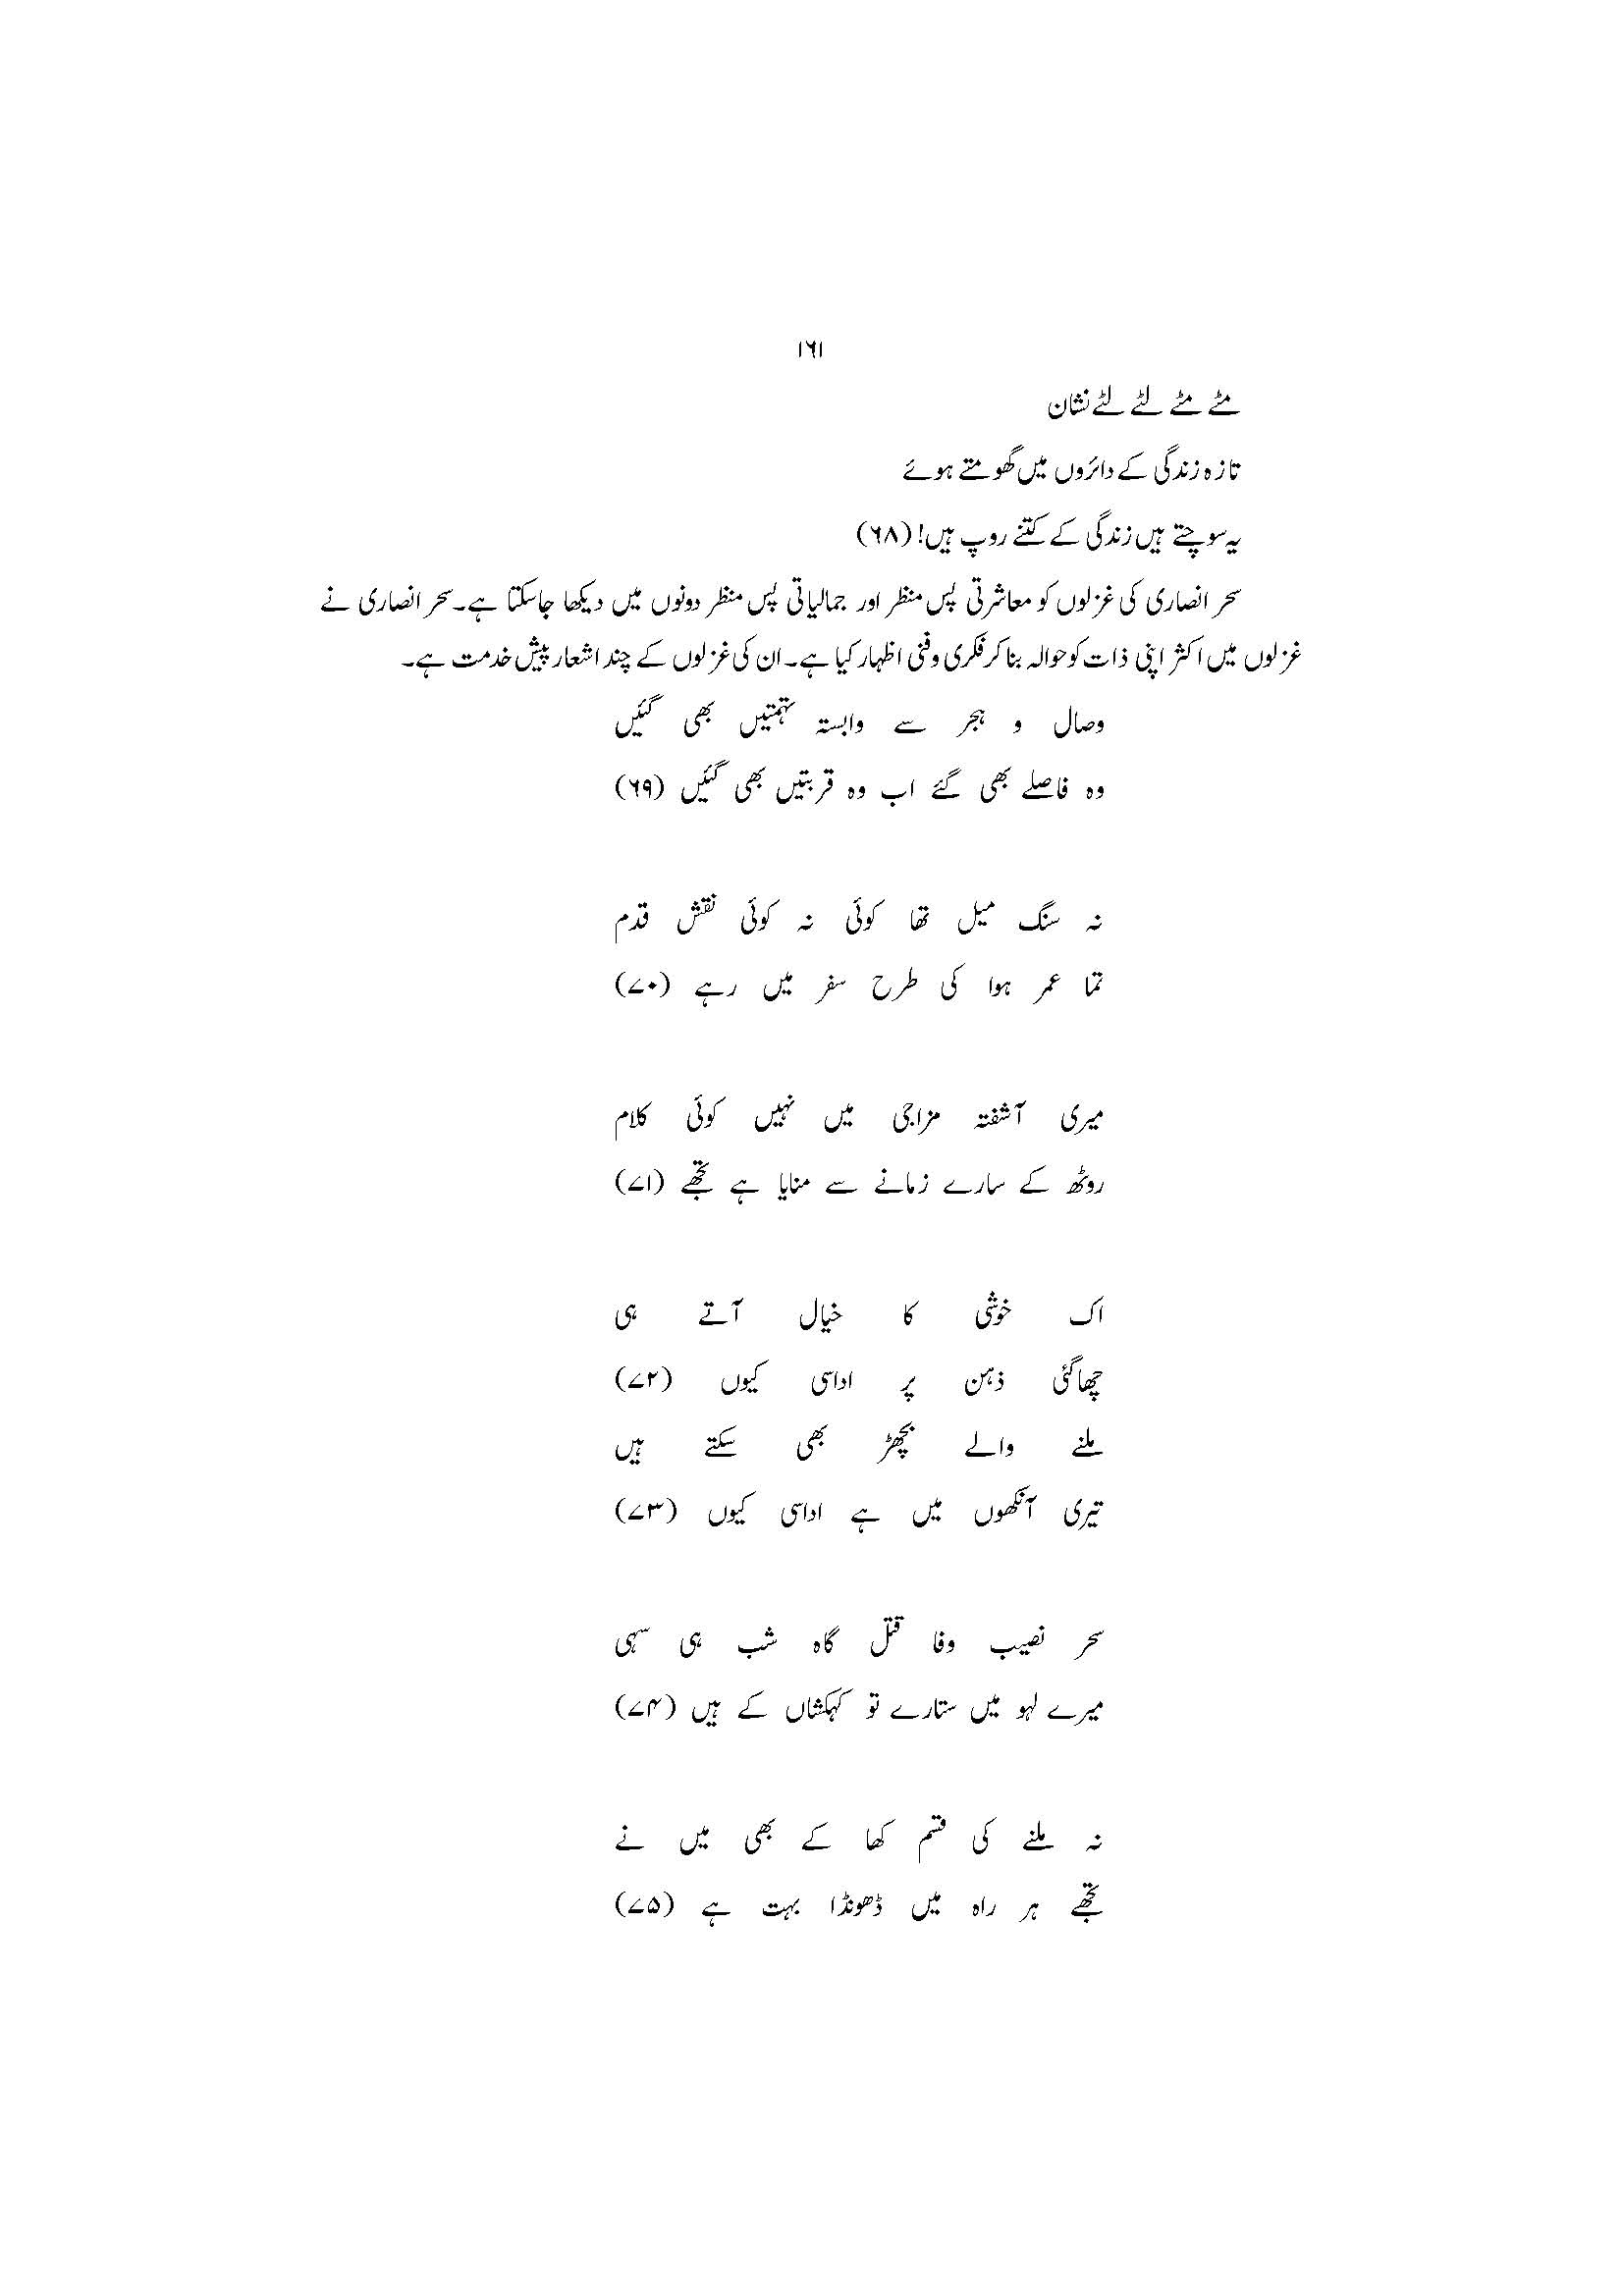 ۱۶۱
مٹے مٹے لٹے لٹے نشان
تازہ زندگی کے دائروں میں گھومتے ہوئے
یہ سوچتے ہیں زندگی کے کتنے روپ ہیں! (۶۸)
سحر انصاری کی غزلوں کو معاشرتی پس منظر اور جمالیاتی پس منظر دونوں میں دیکھا جاسکتا ہے۔سحر انصاری نے
غزلوں میں اکثر اپنی ذات کو حوالہ بنا کر فکری و فنی اظہار کیا ہے۔ان کی غزلوں کے چند اشعار پیش خدمت ہے۔
وصال و ہجر سے وابستہ تہمتیں بھی گئیں
وہ فاصلے بھی گئے اب وہ قربتیں بھی گئیں (۶۹)
نہ سنگ میل تھا کوئی نہ کوئی نقش قدم
تما عمر ہوا کی طرح سفر میں رہے (۷۰)
میری آشفتہ مزاجی میں نہیں کوئی کلام
روٹھ کے سارے زمانے سے منایا ہے تجھے (۷۱)
اک خوشی کا خیال آتے ہی
چھاگئی ذہن پر اداسی کیوں (۷۲)
ملنے والے بچھڑ بھی سکتے ہیں
تیری آنکھوں میں ہے اداسی کیوں (۷۳)
سحر نصیب وفا قتل گاہ شب ہی سہی
میرے لہو میں ستارے تو کہکشاں کے ہیں (۷۴)
نہ ملنے کی قسم کھا کے بھی میں نے
تجھے ہر راہ میں ڈھونڈا بہت ہے (۷۵)